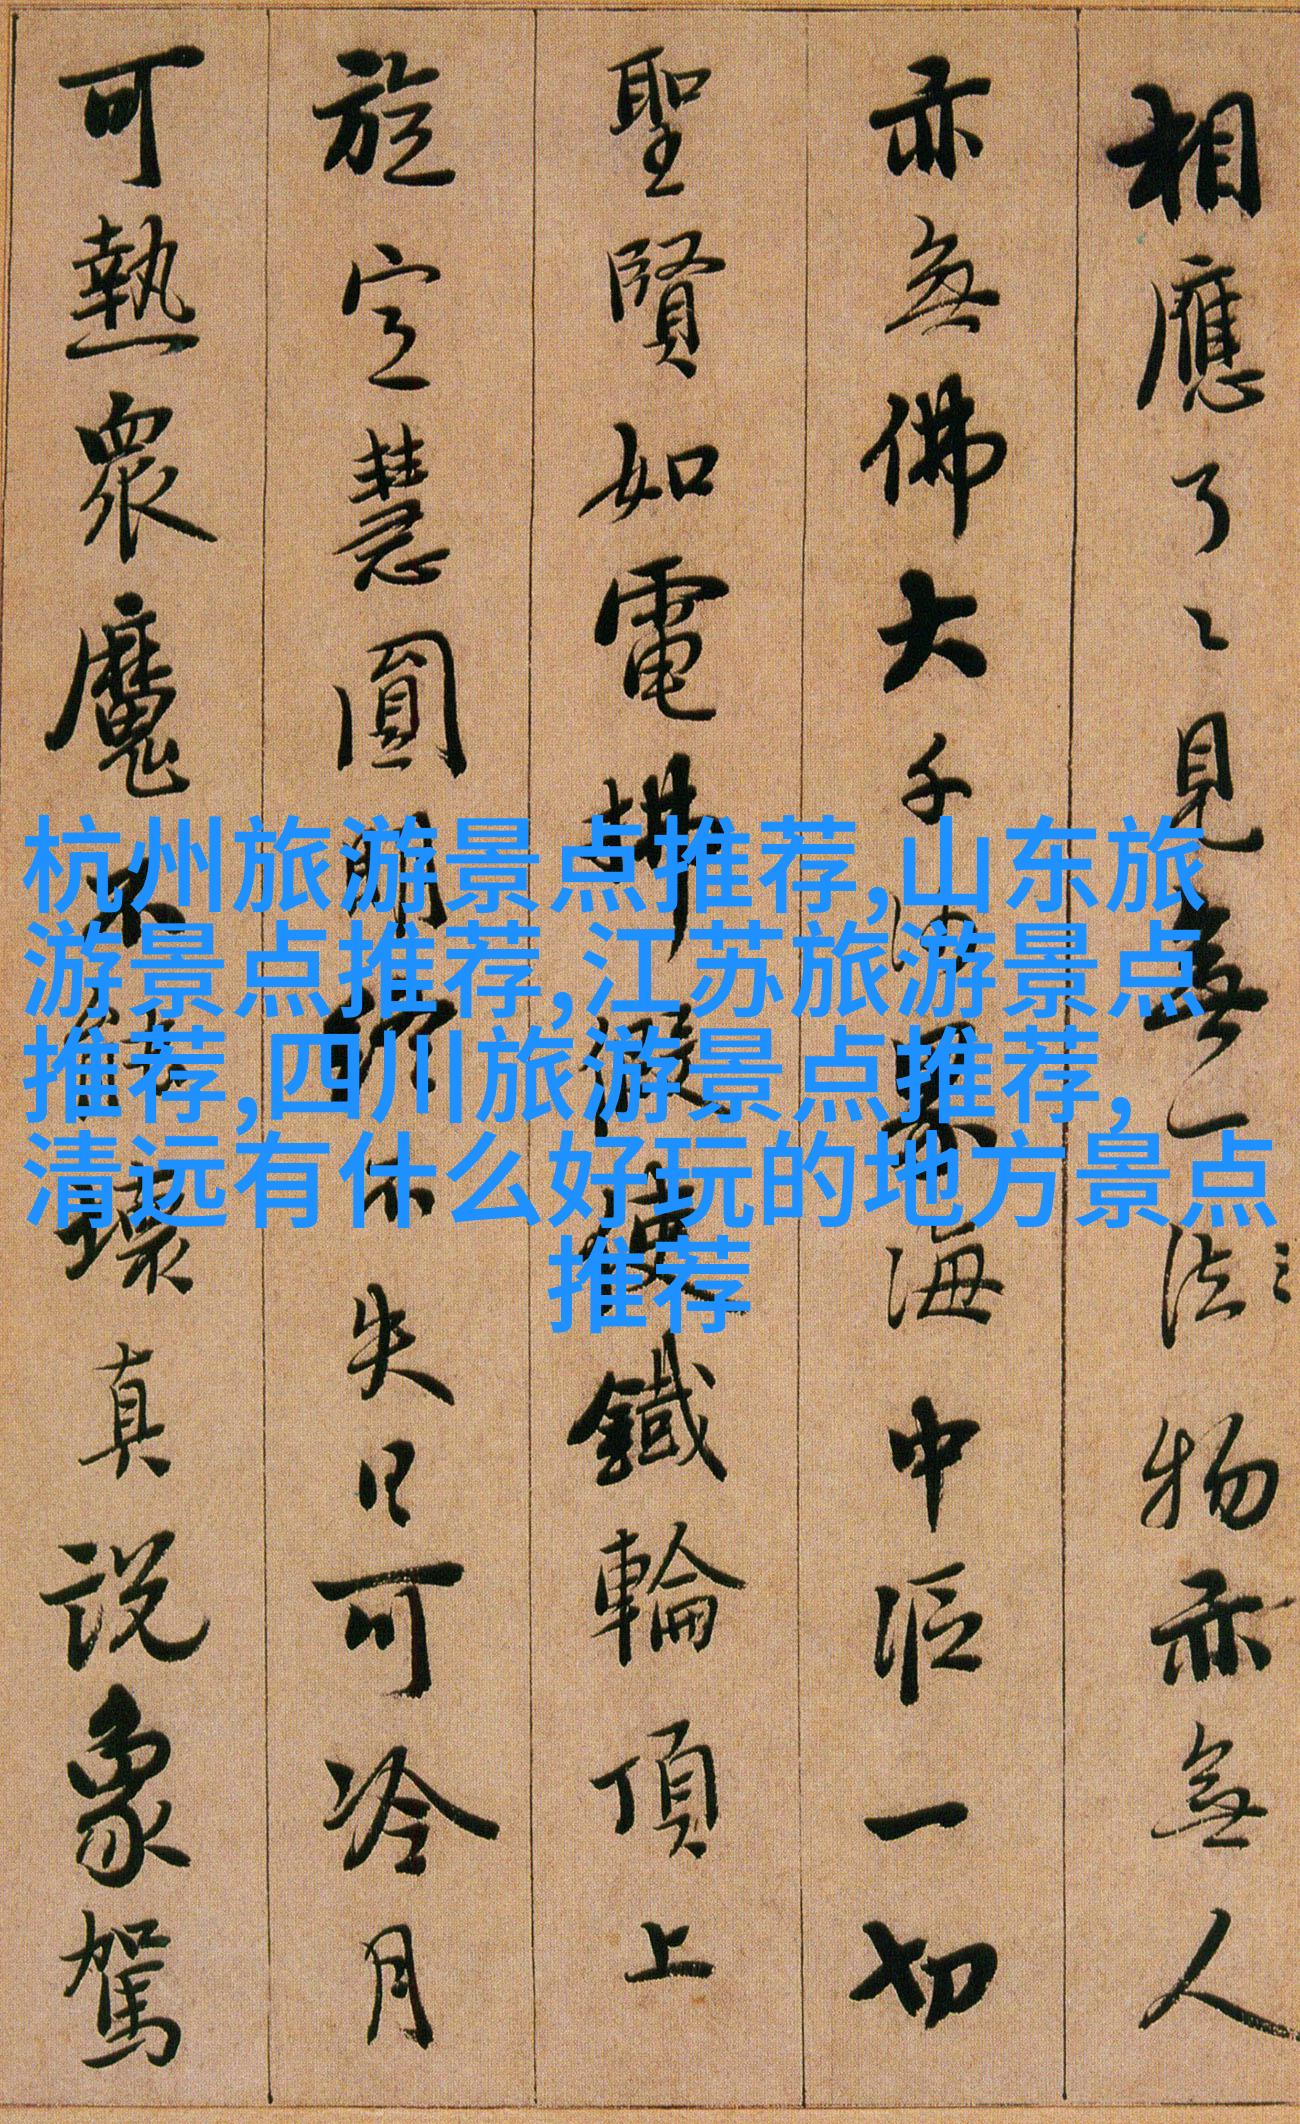 相應了〻見無一法物亦無人
亦無佛大千沙界海中漚一切
聖賢如電拂假使鐵輪頂上
旋定慧圓明終不失日可冷月
可熱衆魔不能壞真説象駕
杭州旅游景点推荐,山东旅
游景点推荐,江苏旅游景点
推荐,四川旅游景点推荐,
清远有什么好玩的地方景点
推荐